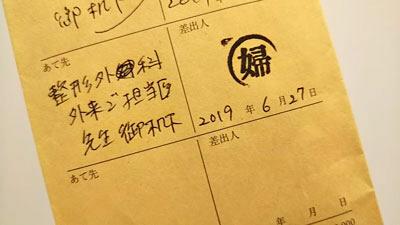 御机下
あて先
整形外科
外来ご担当医
先生 御机下
差出人
婦
2019 年 6 月 27 日
あて先
差出人
年 月 日